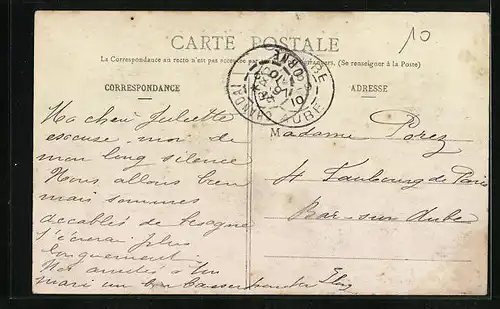 10
CARTE POSTALE
La Correspondance au recto n'est pas acceptée par tous les pays étrangers. (Se renseigner à la Poste)
CORRESPONDANCE
ADRESSE
AUBE
Ma cheri Juliette
excuse moi de
mon long silence
Nous allons bien
mais sommes
accablés de besogne
t'écrirai plus
longuement
Mes amitiés à ton
mari un bon baiser
Madame Porez
4 Faubourg de Paris
Bar-sur-Aube